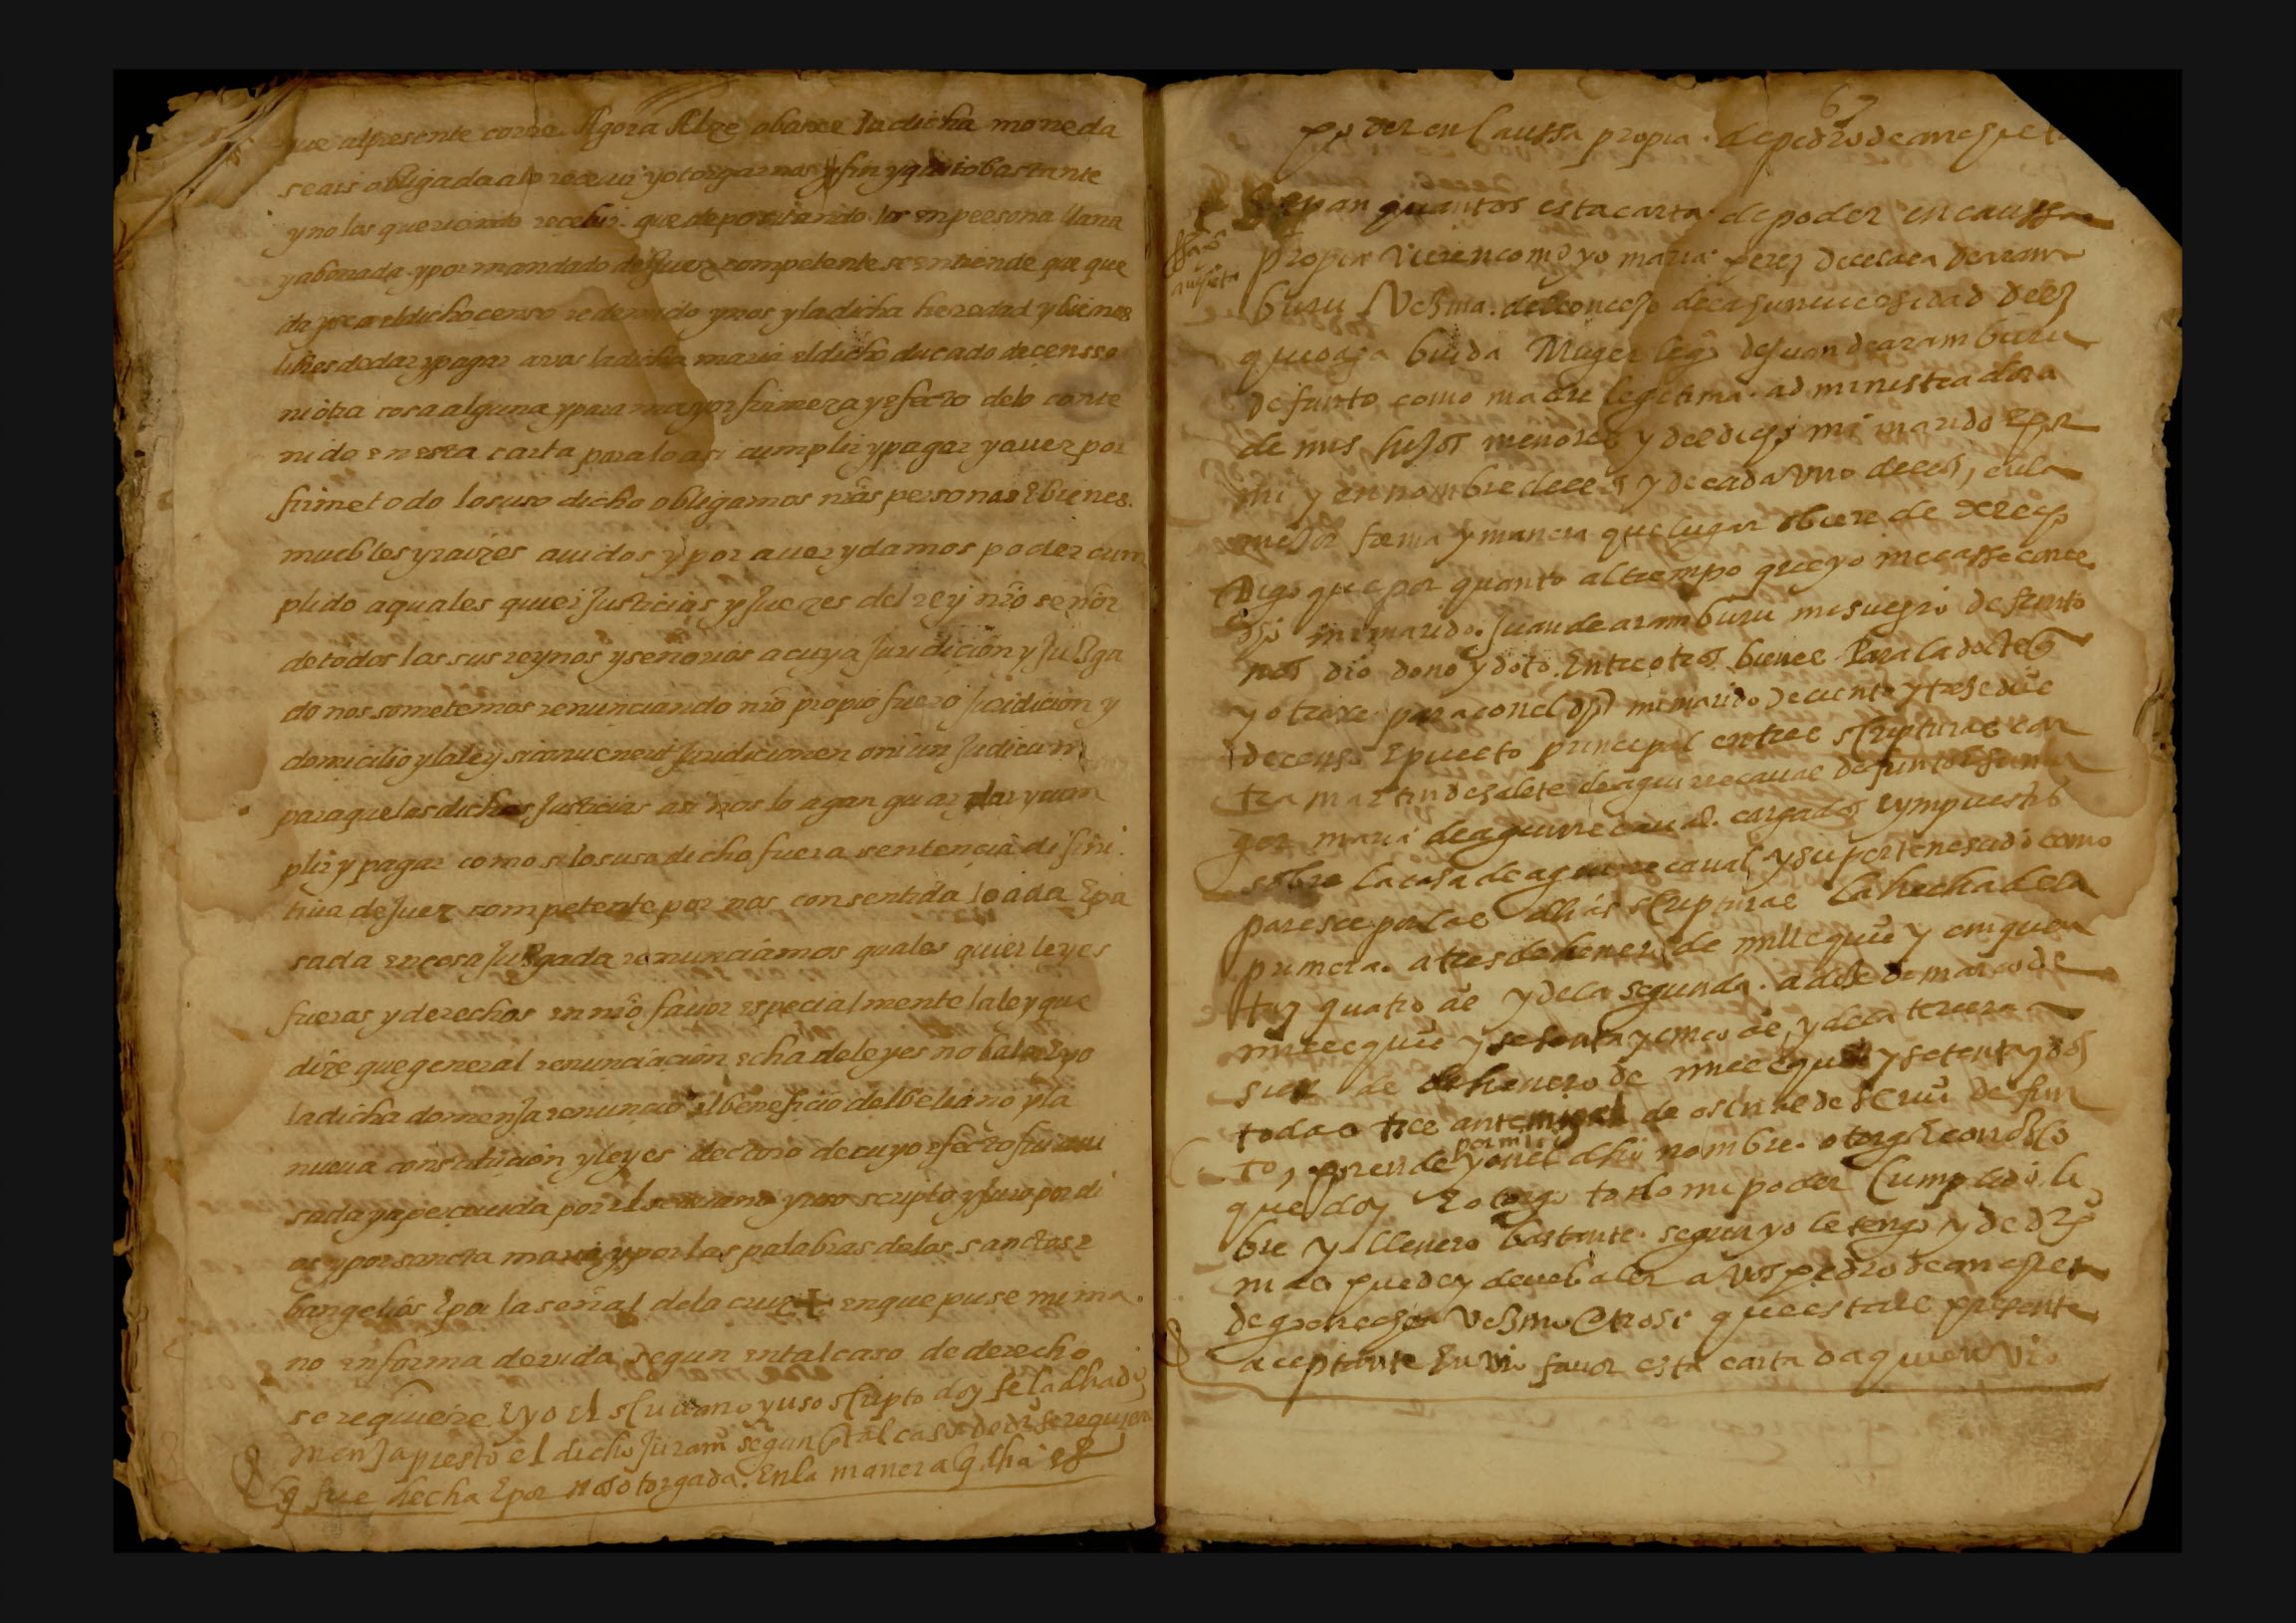 que alpresente corre Agora Alze o baxe la dicha moneda
seais obligada a lo recevir y otorgarnos fin y quito bastante
y no los queriendo recebir que depositando los en persona llana
y abonada y por mandado de Juez competente se entiende que que
da por el dicho censo redemido y nos y la dicha heredad y bienes
libres de dar y pagar a vos la dicha maria el dicho ducado de censso
ni otra cosa alguna y para mayor firmeza y efecto delo conte
nido en esta carta para lo asi cumplir y pagar y auer por
firme todo lo suso dicho obligamos nr̃as personas E bienes
muebles y raizes auidos y por auer y damos poder cum
plido a quales quier Justicias y Juezes del rey nr̃o señor
de todos los sus reynos y señorios a cuya Juridicion y Juzga
do nos sometemos renunciando nr̃o propio fuero Juridicion y
domicilio y la ley si convenerit Jurisdicionen oniun Judicun
para que las dichas Justicias asi nos lo agan guardar y cum
plir y pagar como si lo suso dicho fuera sentencia difini
tiua de Juez competente por nos consentida loada E pa
sada en cosa Juzgada renunciamos quales quier leyes
fueros y derechos en nr̃o fauor especialmente la ley que
dize que general renunciacion echa de leyes no bala E yo
la dicha domenja renuncio el beneficio del beliano y la
nueua constitucion y leyes de toro de cuyo efecto fui aui
sada y apercevida por el scriuano yuso scripto y Juro por di
os y por sancta maria y por las palabras de los sanctos e
bangelios E por la señal de la cruz + en que puse mi ma
no en forma deuida segun en tal caso de derecho
se requiere E yo el scriuano yuso scripto doy fe la dha do
menja presto el dicho Juramº segun en tal caso de drº se requiere
q fue hecha E por nos otorgada. En la manera q dha es
67
poder en caussa propia de pedro de amezqueta
Sepan quantos esta carta de poder en caussa
propia vieren como yo maria perez de celaea de aram
buru vezina del concejo de
que soy biuda Muger legª de Juan de aramburu
defunto como madre legitima administradora
de mis hijos menores y del dicho mi marido E por
mi y en nombre dellos y de cada vno dellos, en la
mejor forma y manera que lugar obiere de derecho
Digo que por quanto al tiempo que yo me casse con el
dho mi marido Juan de aramburu mi suegro defunto
nos dio dono y doto Entre otros bienes Para la dote q
yo truxe para con el dho mi marido de ciento y treze duºs
de censo E puesto principal en tres scripturas con
tra martin de de aguirrecaual defunto
maria de aguirrecaual cargados E ympuestos
sobre la casa de aguirrecaual y su pertenesçido como
paresce por las dhas scripturas la hecha dela
primera a tres de henero de mill e quiºs y cinquen
ta y quatro aºs y de la segunda a diez de março de
mill e quiºs y sesenta y cinco aºs y de la tercera a
de henero de mill e quiºs y setenta y dos
todas tres ante miguel de de scriuº defun
to, por ende por mi y en el dho nombre otorgo E conozco
que doy E otorgo todo mi poder Cumplido li
bre y llenero bastante segun yo le tengo y de drº
mas puede y deue baler a vos pedro de amezqueta
de vezino otrosi que estais presente
aceptante En vrº fauor esta carta